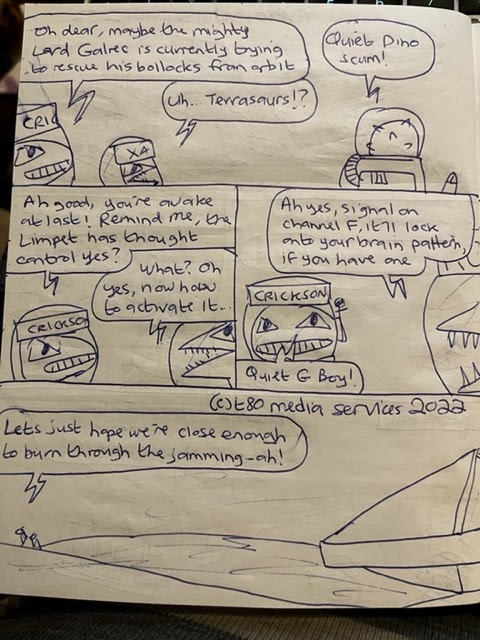 Oh dear, maybe the mighty
Lord Galrec is currently trying
to rescue his bollocks from orbit
Uh... Terrasaurs!?
Quiet Dino
scum!
CRIC
XA
Ah good, you're awake
at last! Remind me, the
Limpet has thought
control yes?
What? Oh
yes, now how
to activate it..
CRICKSON
Ah yes, signal on
channel F, it'll lock
onto your brain pattern,
if you have one
CRICKSON
Quiet G Boy!
(c)t80 media services 2022
Lets just hope we're close enough
to burn through the jamming-ah!